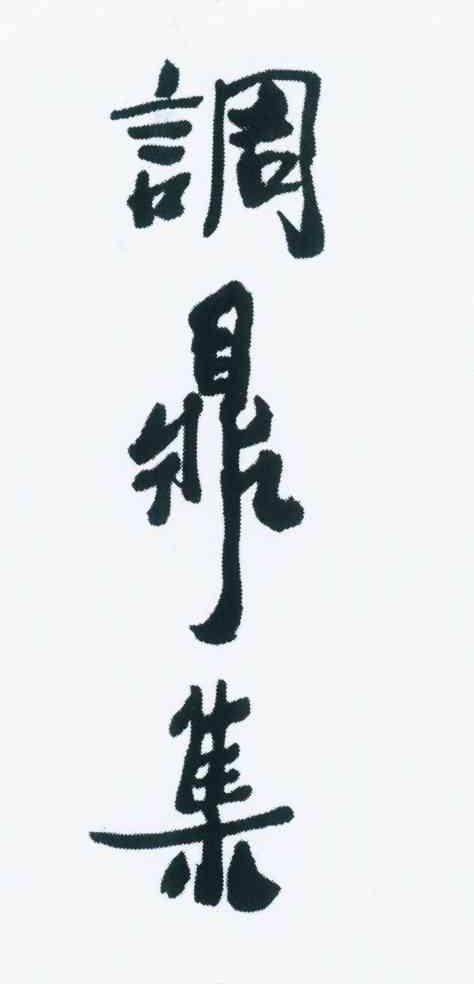 調鼎集